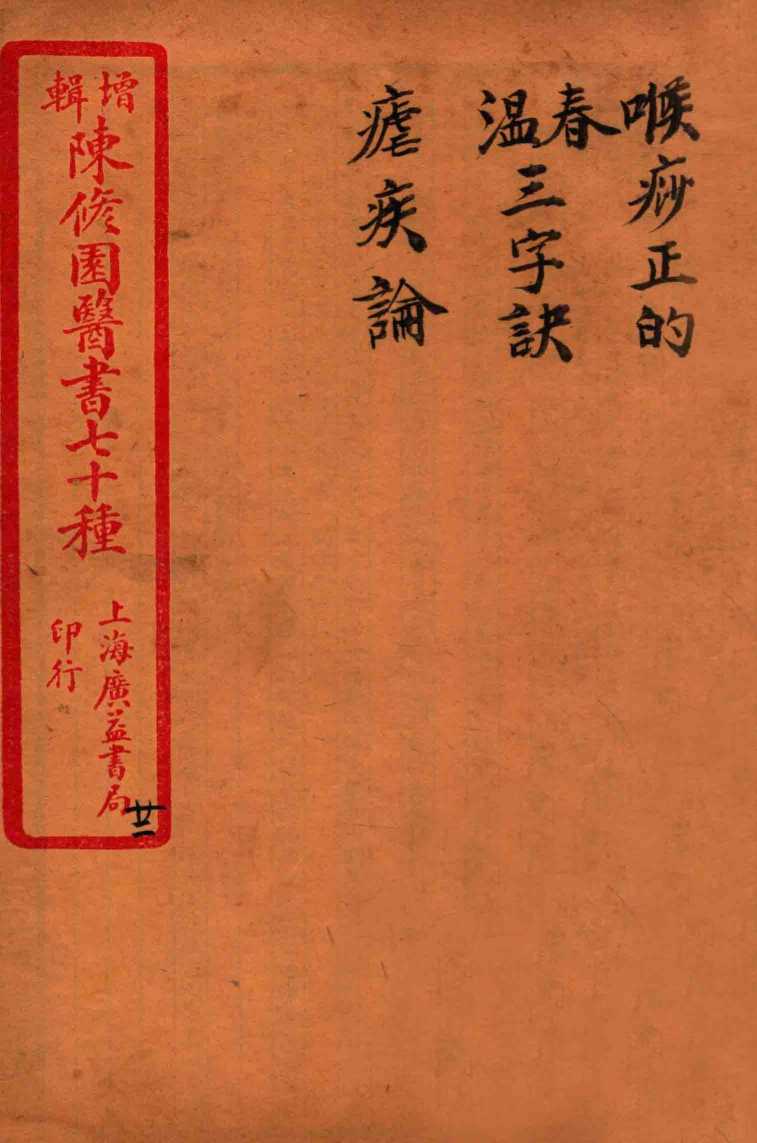 喉痧正的
春温三字訣
瘧疾論
增輯陳修園醫書七十種
上海廣益書局
印行
廿二